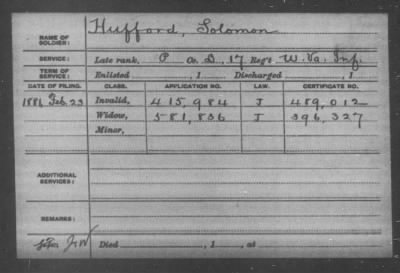 NAME OF SOLDIER: Hufford, Solomon
SERVICE: Late rank, P Co. D, 17 Reg't W. Va. Inf.
TERM OF SERVICE: Enlisted , 1 Discharged , 1
DATE OF FILING. CLASS. APPLICATION NO. LAW. CERTIFICATE NO.
1881 Feb. 23 Invalid, 415,984 J 489,012
Widow, 581,836 I 396,327
Minor,
ADDITIONAL SERVICES:
REMARKS:
Died , 1 , at